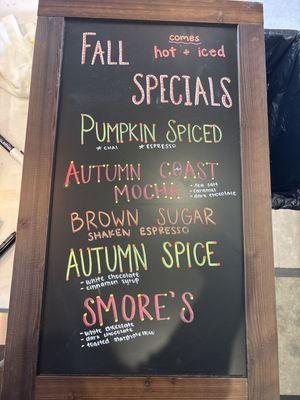 FALL
comes
hot + iced
SPECIALS
PUMPKIN SPICED
* CHAI * ESPRESSO
AUTUMN COAST
MOCHA
- sea salt
- caramel
- dark chocolate
BROWN SUGAR
SHAKEN ESPRESSO
AUTUMN SPICE
- white chocolate
- cinnamon syrup
SMORE'S
- white chocolate
- dark chocolate
- toasted marshmallow